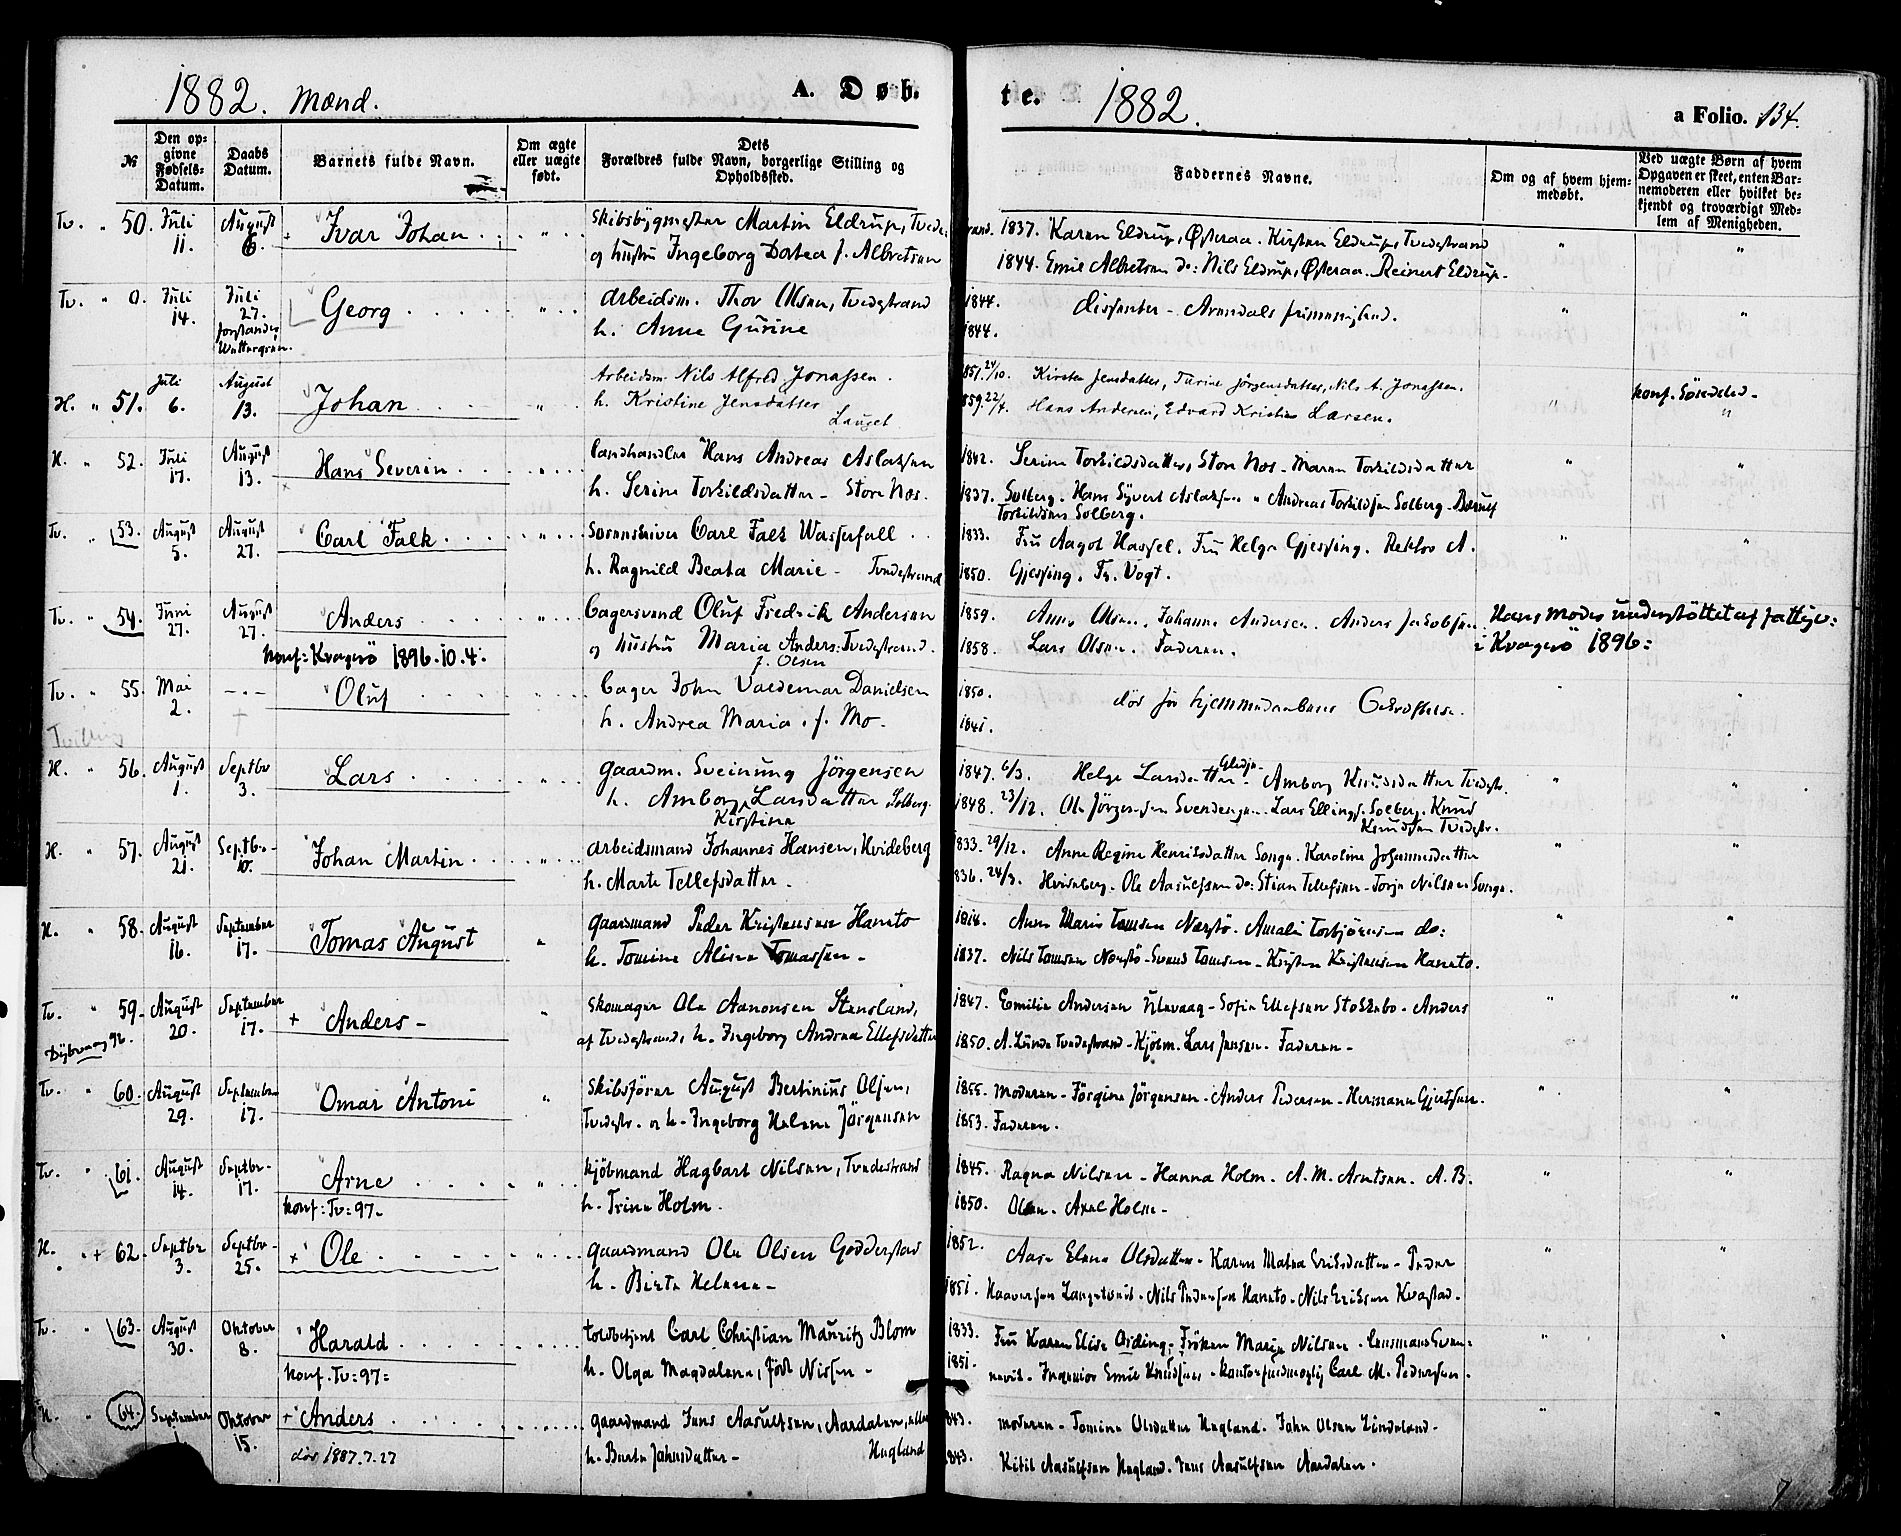 1882. Mænd. A. Døb.
№
Den opgivne Fødsels-Datum.
Daabs Datum.
Barnets fulde Navn.
Om ægte eller uægte født.
Dets Forældres fulde Navn, borgerlige Stilling og Opholdssted.
Tv. " 50. Juli 11. August 6. Ivar Johan " Skibsbygmester Martin Eldrup, Tvede
og hustru Ingeborg Dortea f. Albretsen
Tv. " 0. Juli 14. Juli 27. Georg " Arbeidsm. Thor Olsen, Tvedestrand
forstander
h. Anne Gurine
H. " 51. Juli 6. August 13. Johan " Arbeidsm. Nils Alfred Jonassen.
h. Kristine Jensdatter
H. " 52. Juli 17. August 13. Hans Severin " Landhandler Hans Andreas Aslaksen
h. Serine Torkildsdatter - Store Næs.
Tv. " 53. August 5. August 27. Carl Falk " Sorenskriver Carl Falk Wasserfall
h. Ragnild Beata Marie - Tvedestrand
Tv. " 54. Juni 27. August 27. Anders " Bagersvend Oluf Fredrik Andersen
og hustru Maria Anders: Tvedestrand.
f. Olsen
Konf: Kragerö 1896.10.4.
Tv. " 55. Mai 2. -.- Oluf Bager John Valdemar Danielsen
h. Andrea Maria. f. Mo.
Tvilling
H. " 56. August 1. Septbr 3. Lars Gaardm. Sveinung Jörgensen
h. Amborg Larsdatter Solberg.
Kirstine
H. " 57. August 21. Septbr. 10. Johan Martin " Arbeidsmand Johannes Hansen, Kvideberg
h. Marte Tellefsdatter.
H. " 58. August 16. September 17. Tomas August " Gaardmand Peder Kristensen Hanto
h. Tomine Alise Tomassen -
Tv. " 59. August 20. September 17. + Anders - " Skomager Ole Aanonsen Stensland,
af Tvedestrand, h. Ingeborg Andrea Ellefsdatter
Tv. " 60. August 29. September 17. Omar Antoni " Skibsförer August Bertinius Olsen,
Tvedestr. og h. Ingeborg Helene Jörgensen
Tv. " 61. August 14. Septbr. 17. Arne " Kjöbmand Hagbart Nilsen, Tvedestrand
h. Trine Holm.
Konf: Tv: 97-
H. " + 62. Septbr 3. Septbr. 25. + Ole " Gaardmand Ole Olsen Godderstad
h. Birte Helene -
Tv. " 63. August 30. Oktober 8. Harald Toldbetjent Carl Christian Mauritz Blom
h. Olga Magdalena, født Nissen -
Konf. Tv: 97:
H. " 64. September 1 Oktober 15. + Anders Gaardmand Jens Aasulfsen, Aardalen,
h. Berte Jahnsdatter - Hegland
död 1887.7.27
te. 1882. a Folio. 134.
Faddernes Navne.
Om og af hvem hjemmedøbt.
Ved uægte Børn af hvem Opgaven er skeet, enten Barnemoderen eller hvilket bekjendt og troværdigt Medlem af Menigheden.
rand. 1837. Karen Eldrup, Österaa. Kirsten Eldrup, Tvedestrand " "
1844. Emil Albretsen do: Nils Eldrup, Österaa. Reinert Eldrup.
1844. dissenter - Arendals frimenighed. " "
1844.
857. 24/10. Kirsten Jensdatter, Tarine Jörgensdatter, Nils A. Jonassen. konf. Söndeled -
859. 22/4. Hans Andersen, Edvard Kristian Larsen. " "
1842. Serine Torkildsdatter, Store Næs - Maren Torkildsdatter " "
1837. Solberg. Hans Syvert Aslaksen " Andreas Torkildsen Solberg -
Torkildsens Solberg.
1833. Fru Aagot Hassel. Fru Helga Gjessing. Rektor A. " "
1850. Gjessing. Fr. Vogt.
1859. Anne Olsen. Johanne Andersen. Anders Jakobsen Hans moder understöttet af fattigv:
1858. Lars Olsen. Faderen. i Kragerö 1896:
1850. död før hjemmedaabens Bekræftelse. " "
1841.
1847. 6/3. Helge Larsdatter Amborg Knudsdatter Tvedestr. " "
1848. 23/12. Ole Jörgensen - Lars Ellingf. Solberg. Knud
Knudsen Tvedestr.
833. 29/12. Anne Regine Henriksdatter Songe. Karoline Johannesdatter " "
836. 24/3. Kvideberg. Ole Aasulfsen do: Stian Tellefsen - Terje Nilsen Songe.
1814. Anne Marie Tomsen Næstö. Amalie Torbjörnsen do: " "
1837. Nils Tomsen Næstö - Svend Tomsen - Kristen Kristensen Hanto.
1847. Emilie Andersen - Sofie Ellefsen - Anders " "
1850. A. Lunde Tvedestrand - Kjölm. Lars Jensen. Faderen -
1855. Moderen - Jörgine Jörgensen - Anders Pedersen - Herman Gjertsen. " "
1853. Faderen.
1845. Ragna Nilsen - Hanna Holm. A. M. Arntsen. A. B. " "
1850. Olsen. Axel Holm -
1852. Aase Elene Olsdatter - Karen Malna Eriksdatter - Peder " "
1851. Haaversen - Nils Pedersen Hanto - Nils Eriksen Kvastad.
1833. Fru Karen Elise - Fröken Marie Nilsen - " "
1851. Ingeniör Emil Knudsen - Carl M. Pedersen.
843. Moderen - Tomine Olsdatter Hegland. Jahn Olsen Lindeland - " "
843. Kitil Aasulfsen Hegland. Jens Aasulfsen Aardalen.